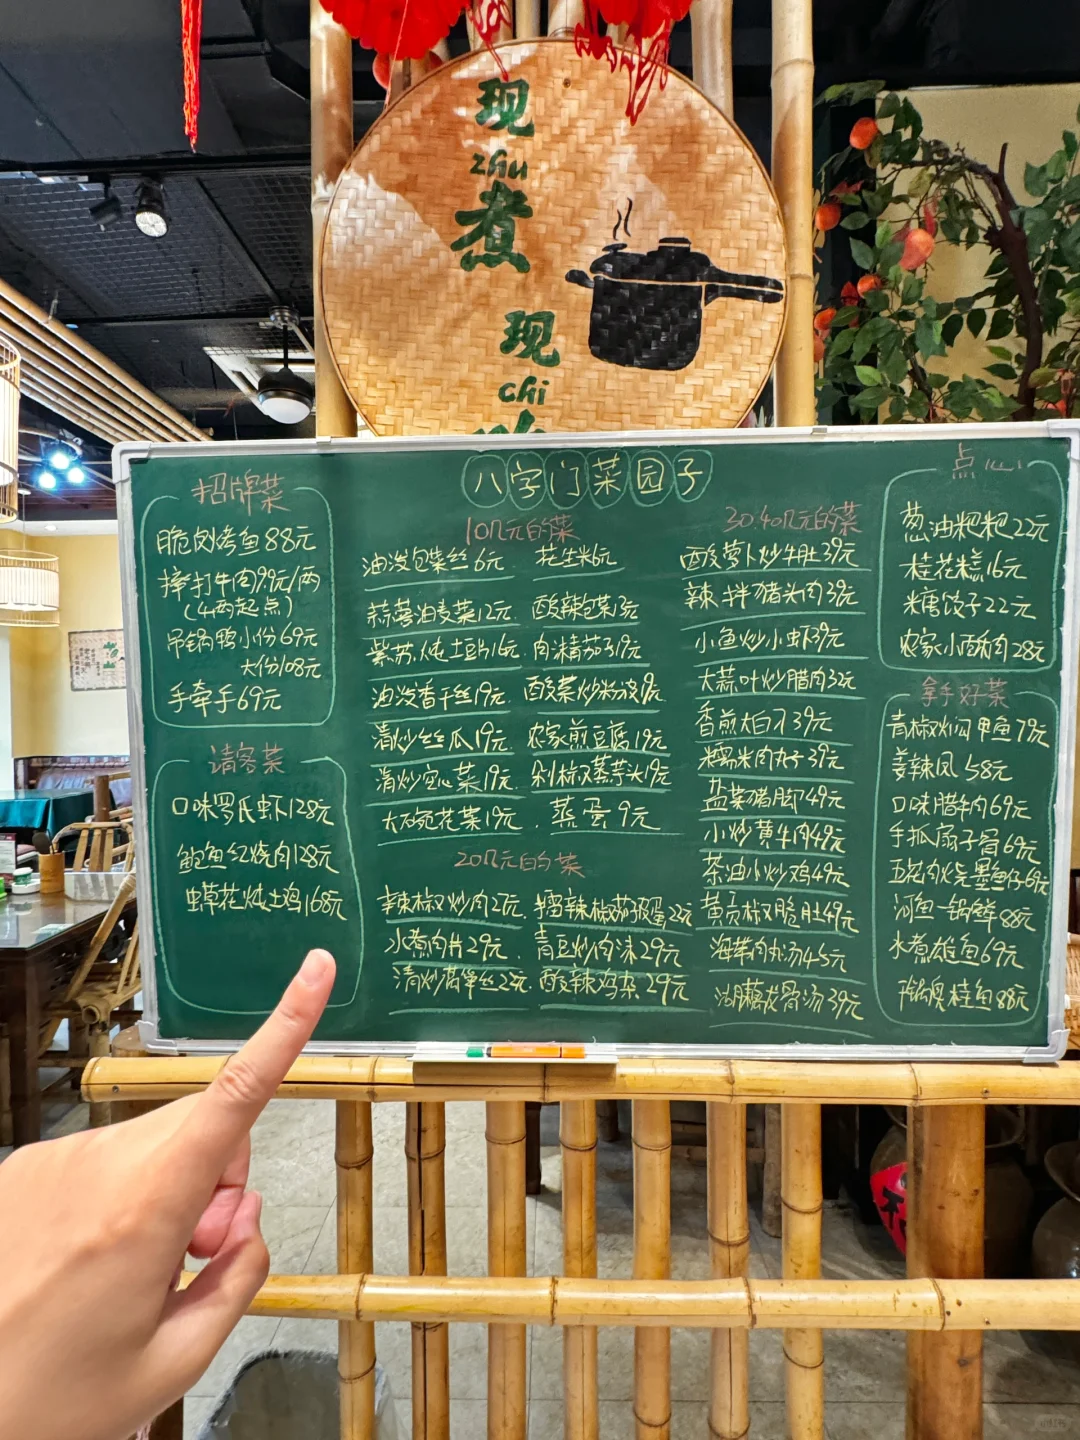 现
zhu
煮
现
chi
八字门菜园子
招牌菜
脆皮烤鱼88元
摔打牛肉99元/两
(4两起点)
吊锅鸭小份69元
大份108元
手牵手69元
请客菜
口味罗氏虾128元
鲍鱼红烧肉128元
虫草花炖土鸡168元
10几元的菜
油泼包菜丝6元 花生米6元
蒜蓉油麦菜12元 酸辣包菜13元
紫苏炖土豆片16元 肉沫茄子19元
油泼香干丝19元 酸菜炒粉皮19元
清炒丝瓜19元 农家煎豆腐19元
清炒空心菜19元 剁椒蒸芋头19元
大碗花菜19元 蒸蛋9元
20几元的菜
辣椒炒肉27元 擂辣椒茄子皮蛋22元
水煮肉片29元 青豆炒肉沫29元
清炒莴笋丝22元 酸辣鸡杂29元
30.40几元的菜
酸萝卜炒牛肚39元
辣拌猪头肉39元
小鱼炒小虾39元
大蒜叶炒腊肉32元
香煎大白刁39元
糯米肉丸子39元
盐菜猪脚49元
小炒黄牛肉49元
茶油小炒鸡49元
黄贡椒脆肚49元
海带肉丸汤45元
湖藕龙骨汤39元
点心
葱油粑粑22元
桂花糕16元
米糖饺子22元
农家小酥肉28元
拿手好菜
青椒焖甲鱼79元
姜辣凤 58元
口味腊牛肉69元
手抓扇子骨69元
五花肉烧墨鱼仔69元
河鱼一锅鲜88元
水煮雄鱼69元
桂鱼88元